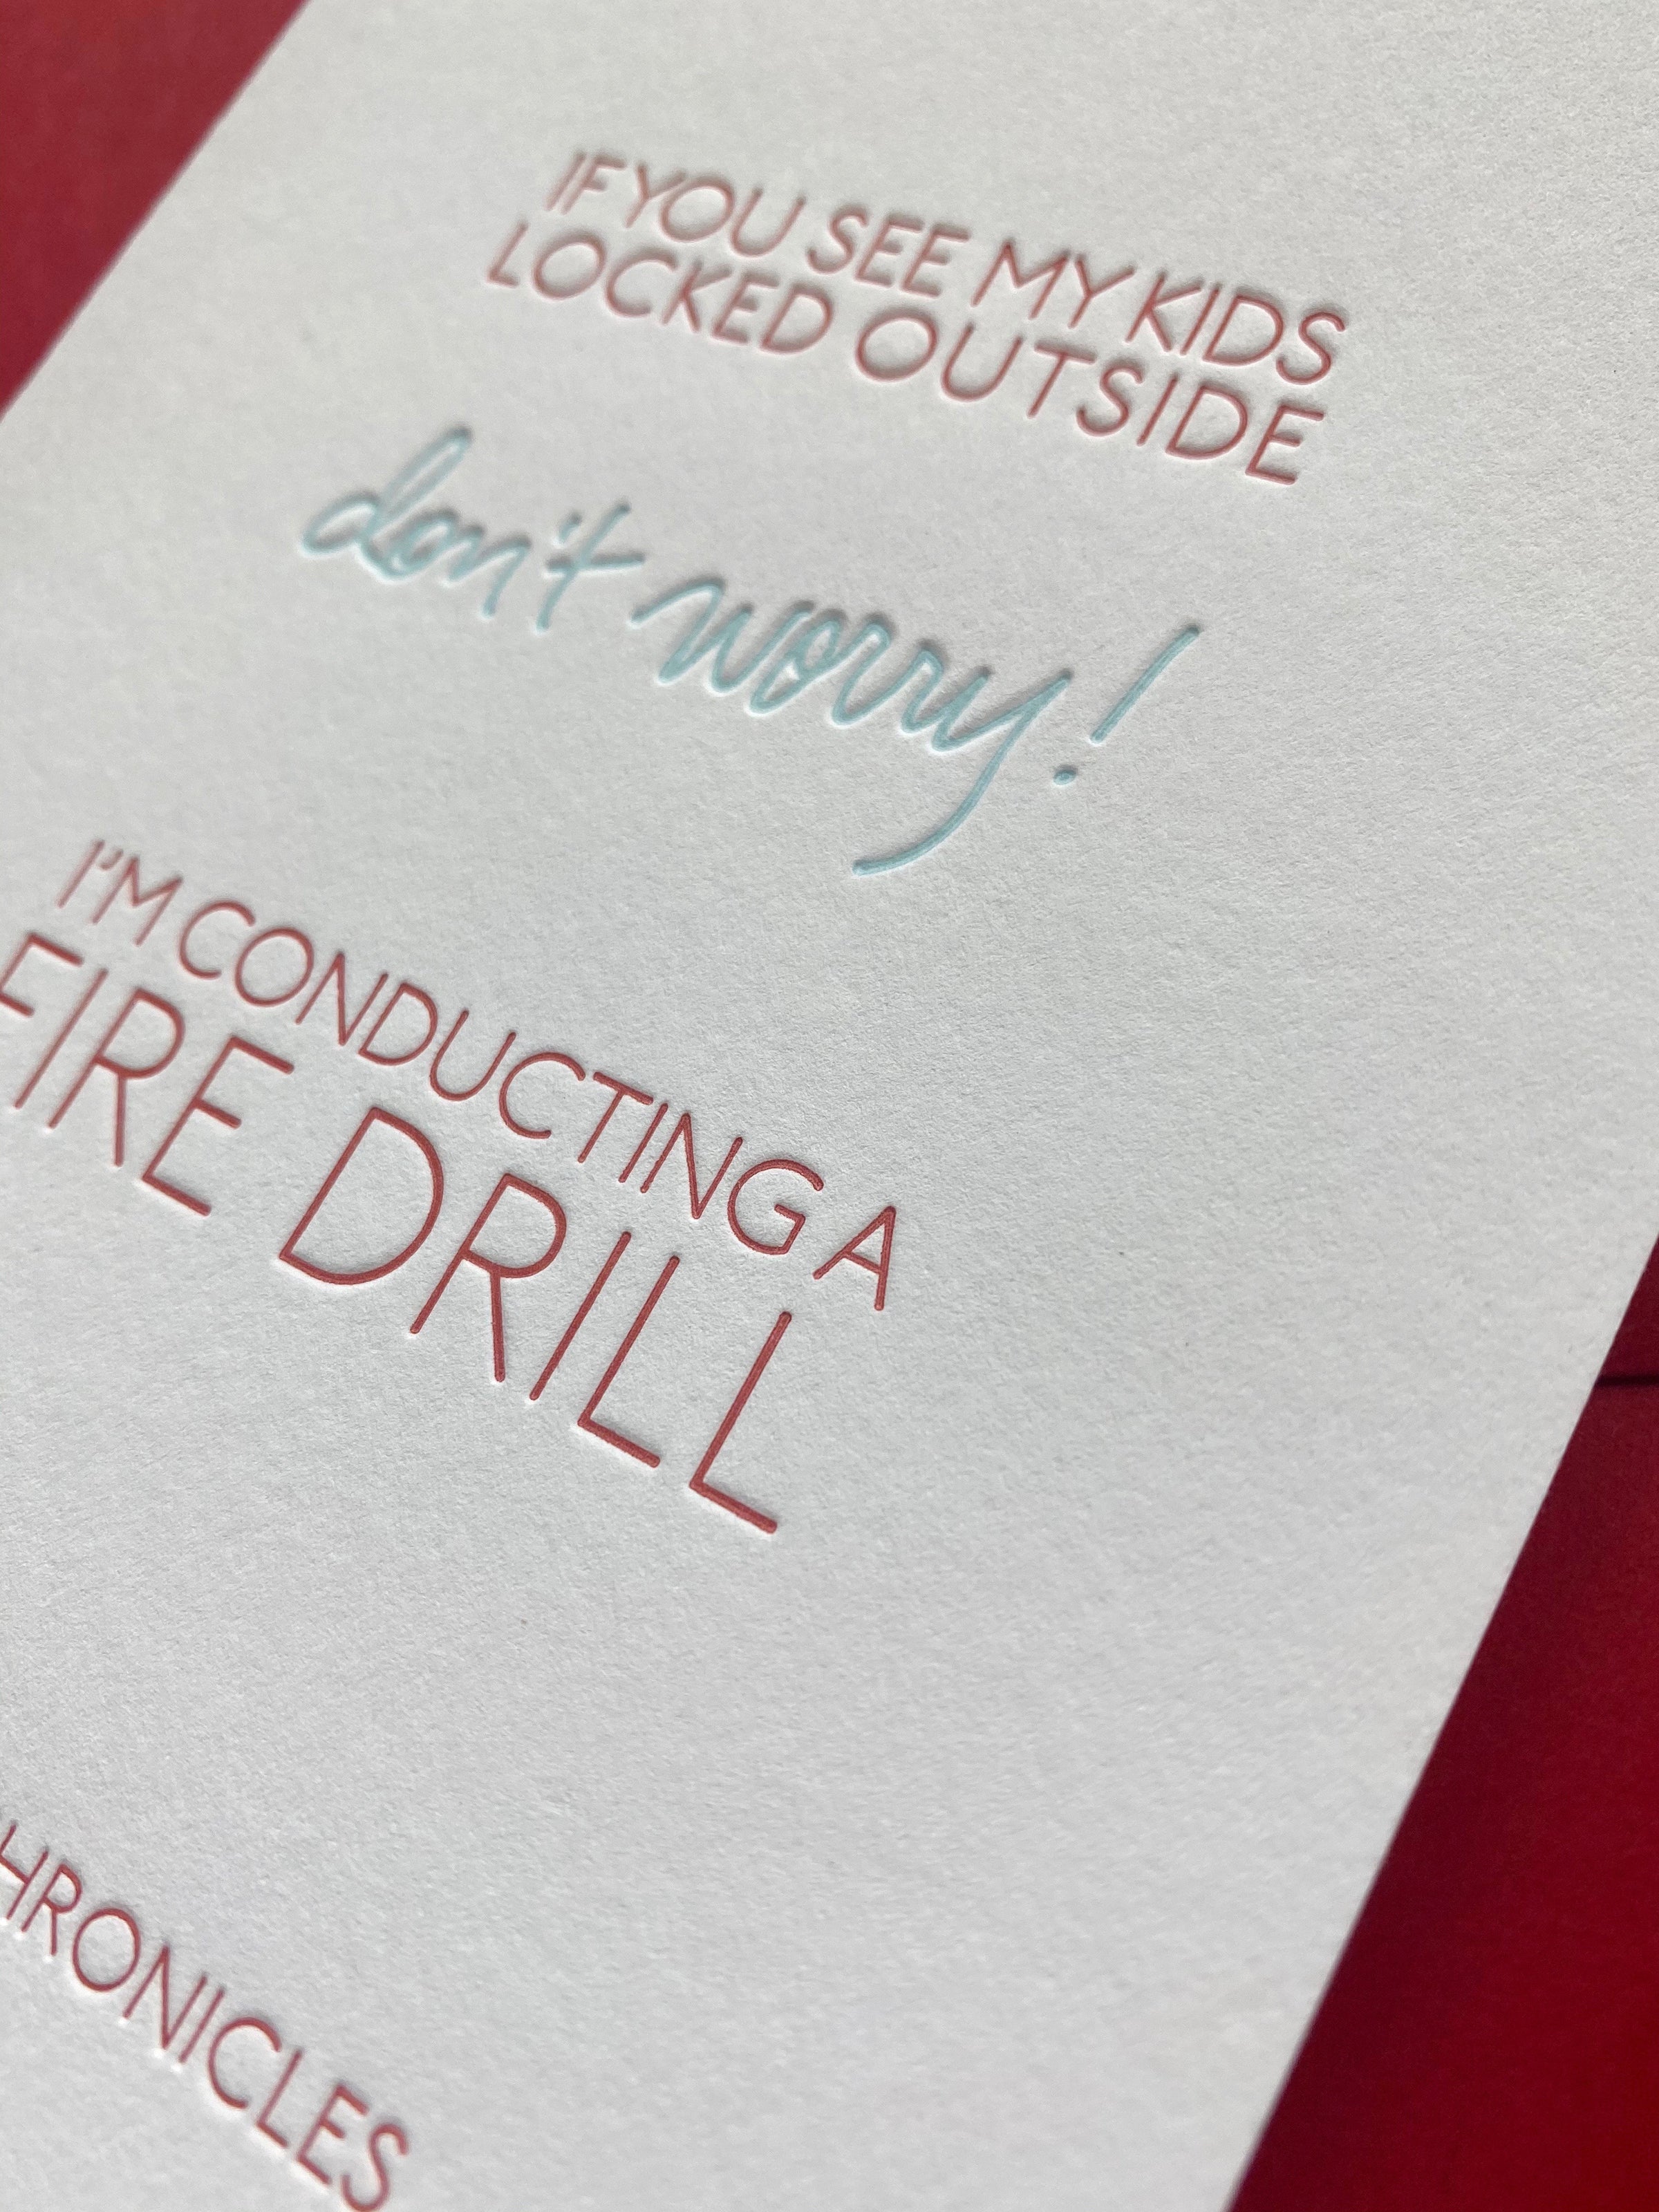 IF YOU SEE MY KIDS
LOCKED OUTSIDE
don't worry!
I'M CONDUCTING A
FIRE DRILL
HRONICLES